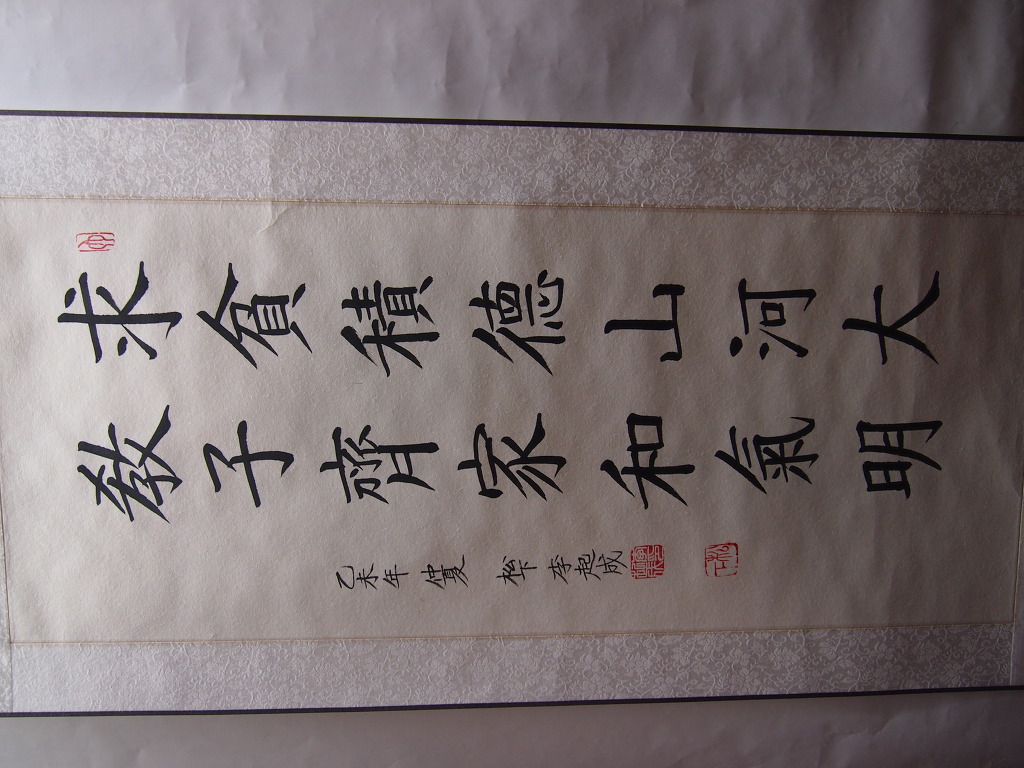 求貧積德山河大
敎子齊家和氣明
乙未年 仲夏 松下 李